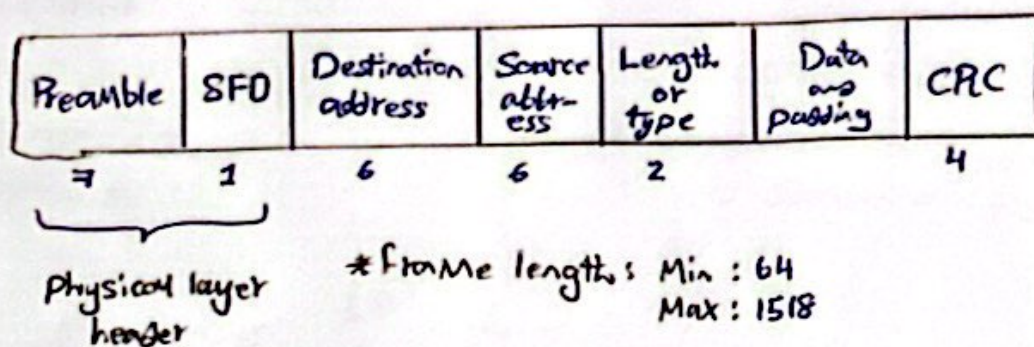 Preamble
SFD
Destination
address
Source
addr-
ess
Length
or
type
Data
and
padding
CRC
7 1 6 6 2 4
Physical layer
header
*Frame length: Min : 64
Max : 1518